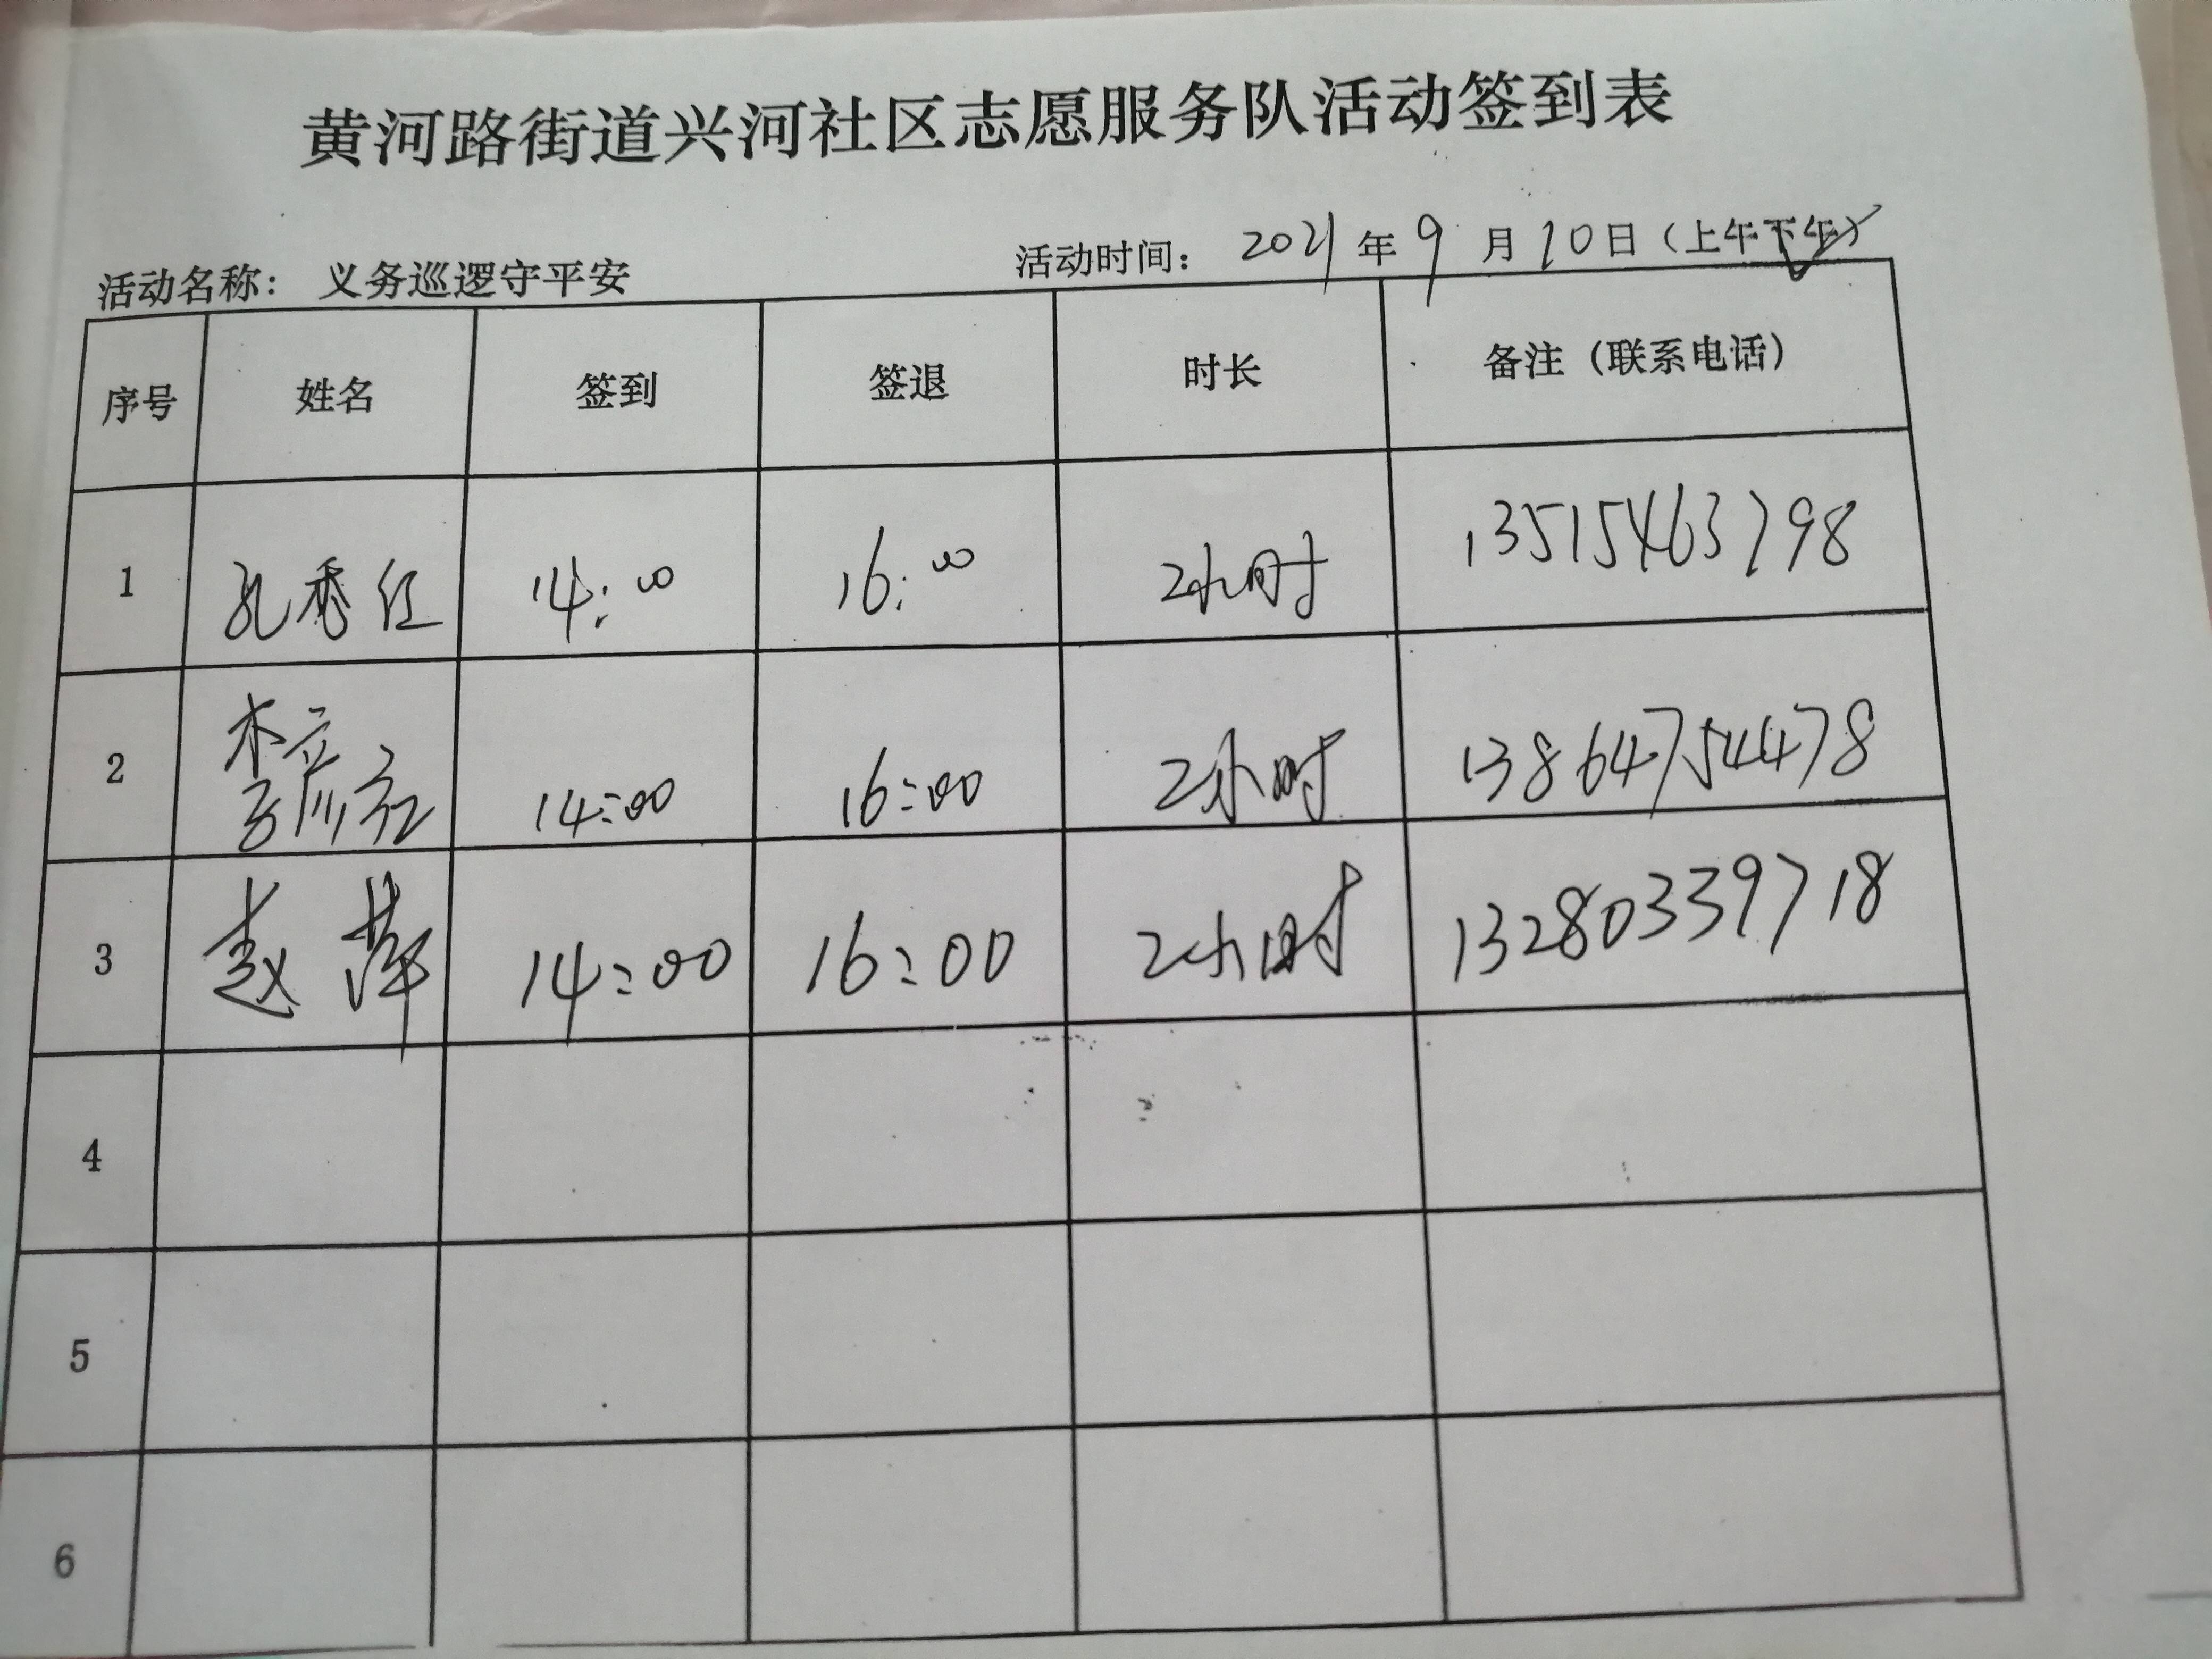 黄河路街道兴河社区志愿服务队活动签到表
活动名称： 义务巡逻守平安 活动时间： 2021 年 9 月 10 日（上午下午）
序号 姓名 签到 签退 时长 备注（联系电话）
1 孔秀红 14:00 16:00 2小时 13515463798
2 李彦红 14:00 16:00 2小时 13864754478
3 赵萍 14:00 16:00 2小时 13280339718
4
5
6